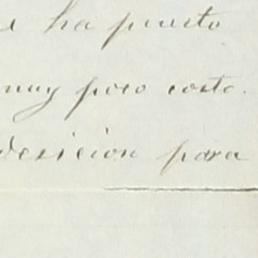 ha puesto
muy poco costo.
desicion para